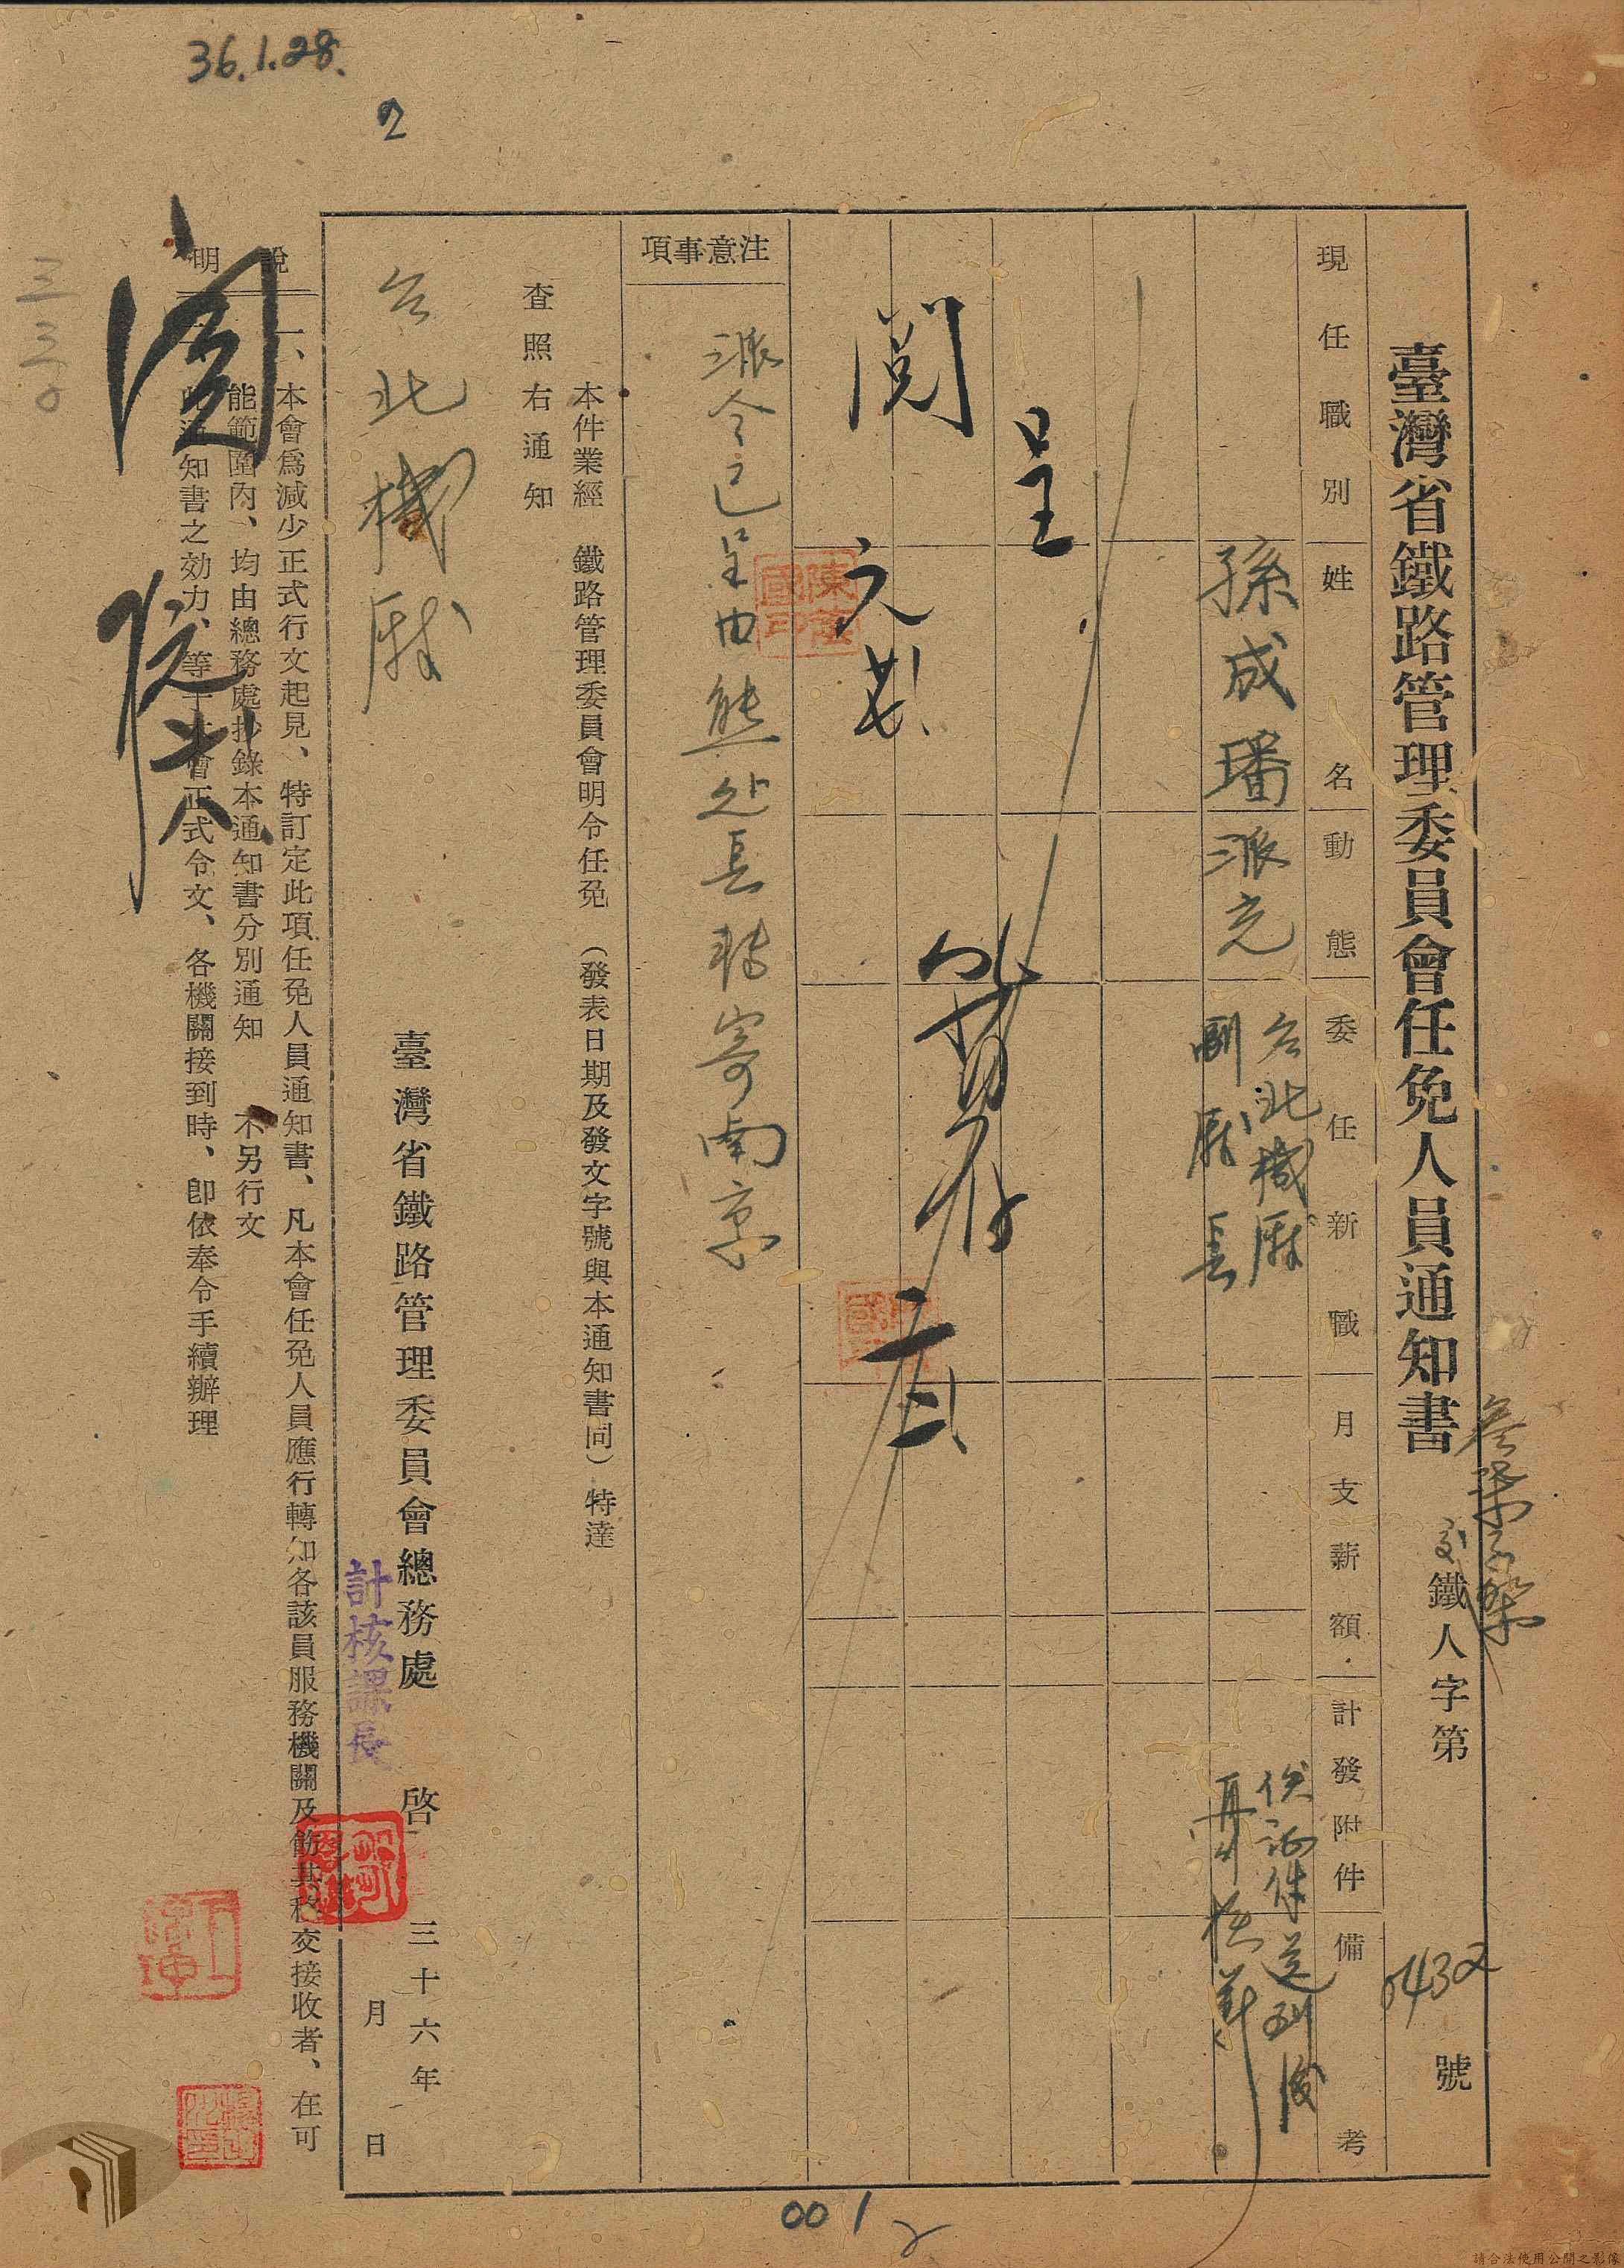 36.1.28.
2
臺灣省鐵路管理委員會任免人員通知書
鐵人字第 5432 號
現任職別
姓名
動態
委任新職
月支薪額
計發附件
備考
孫成璠
派充
台北機廠
副廠長
俟証件送到後
再核薪
呈
閱
元、廿、
暫存
二、弍、
注意事項
派令已呈由熊处長轉寄南京
本件業經 鐵路管理委員會明令任免 (發表日期及發文字號與本通知書同) 特達
查照右通知
台北機廠
臺灣省鐵路管理委員會總務處 啓 三十六年
月 日
計核課長
說明
一、本會爲減少正式行文起見、特訂定此項任免人員通知書、凡本會任免人員應行轉知各該員服務機關及飭其移交接收者、在可
能範圍內、均由總務處抄錄本通知書分別通知 不另行文
知書之効力、等于本會正式令文、各機關接到時、卽依奉令手續辦理
閱
001
2
請合法使用公開之影像